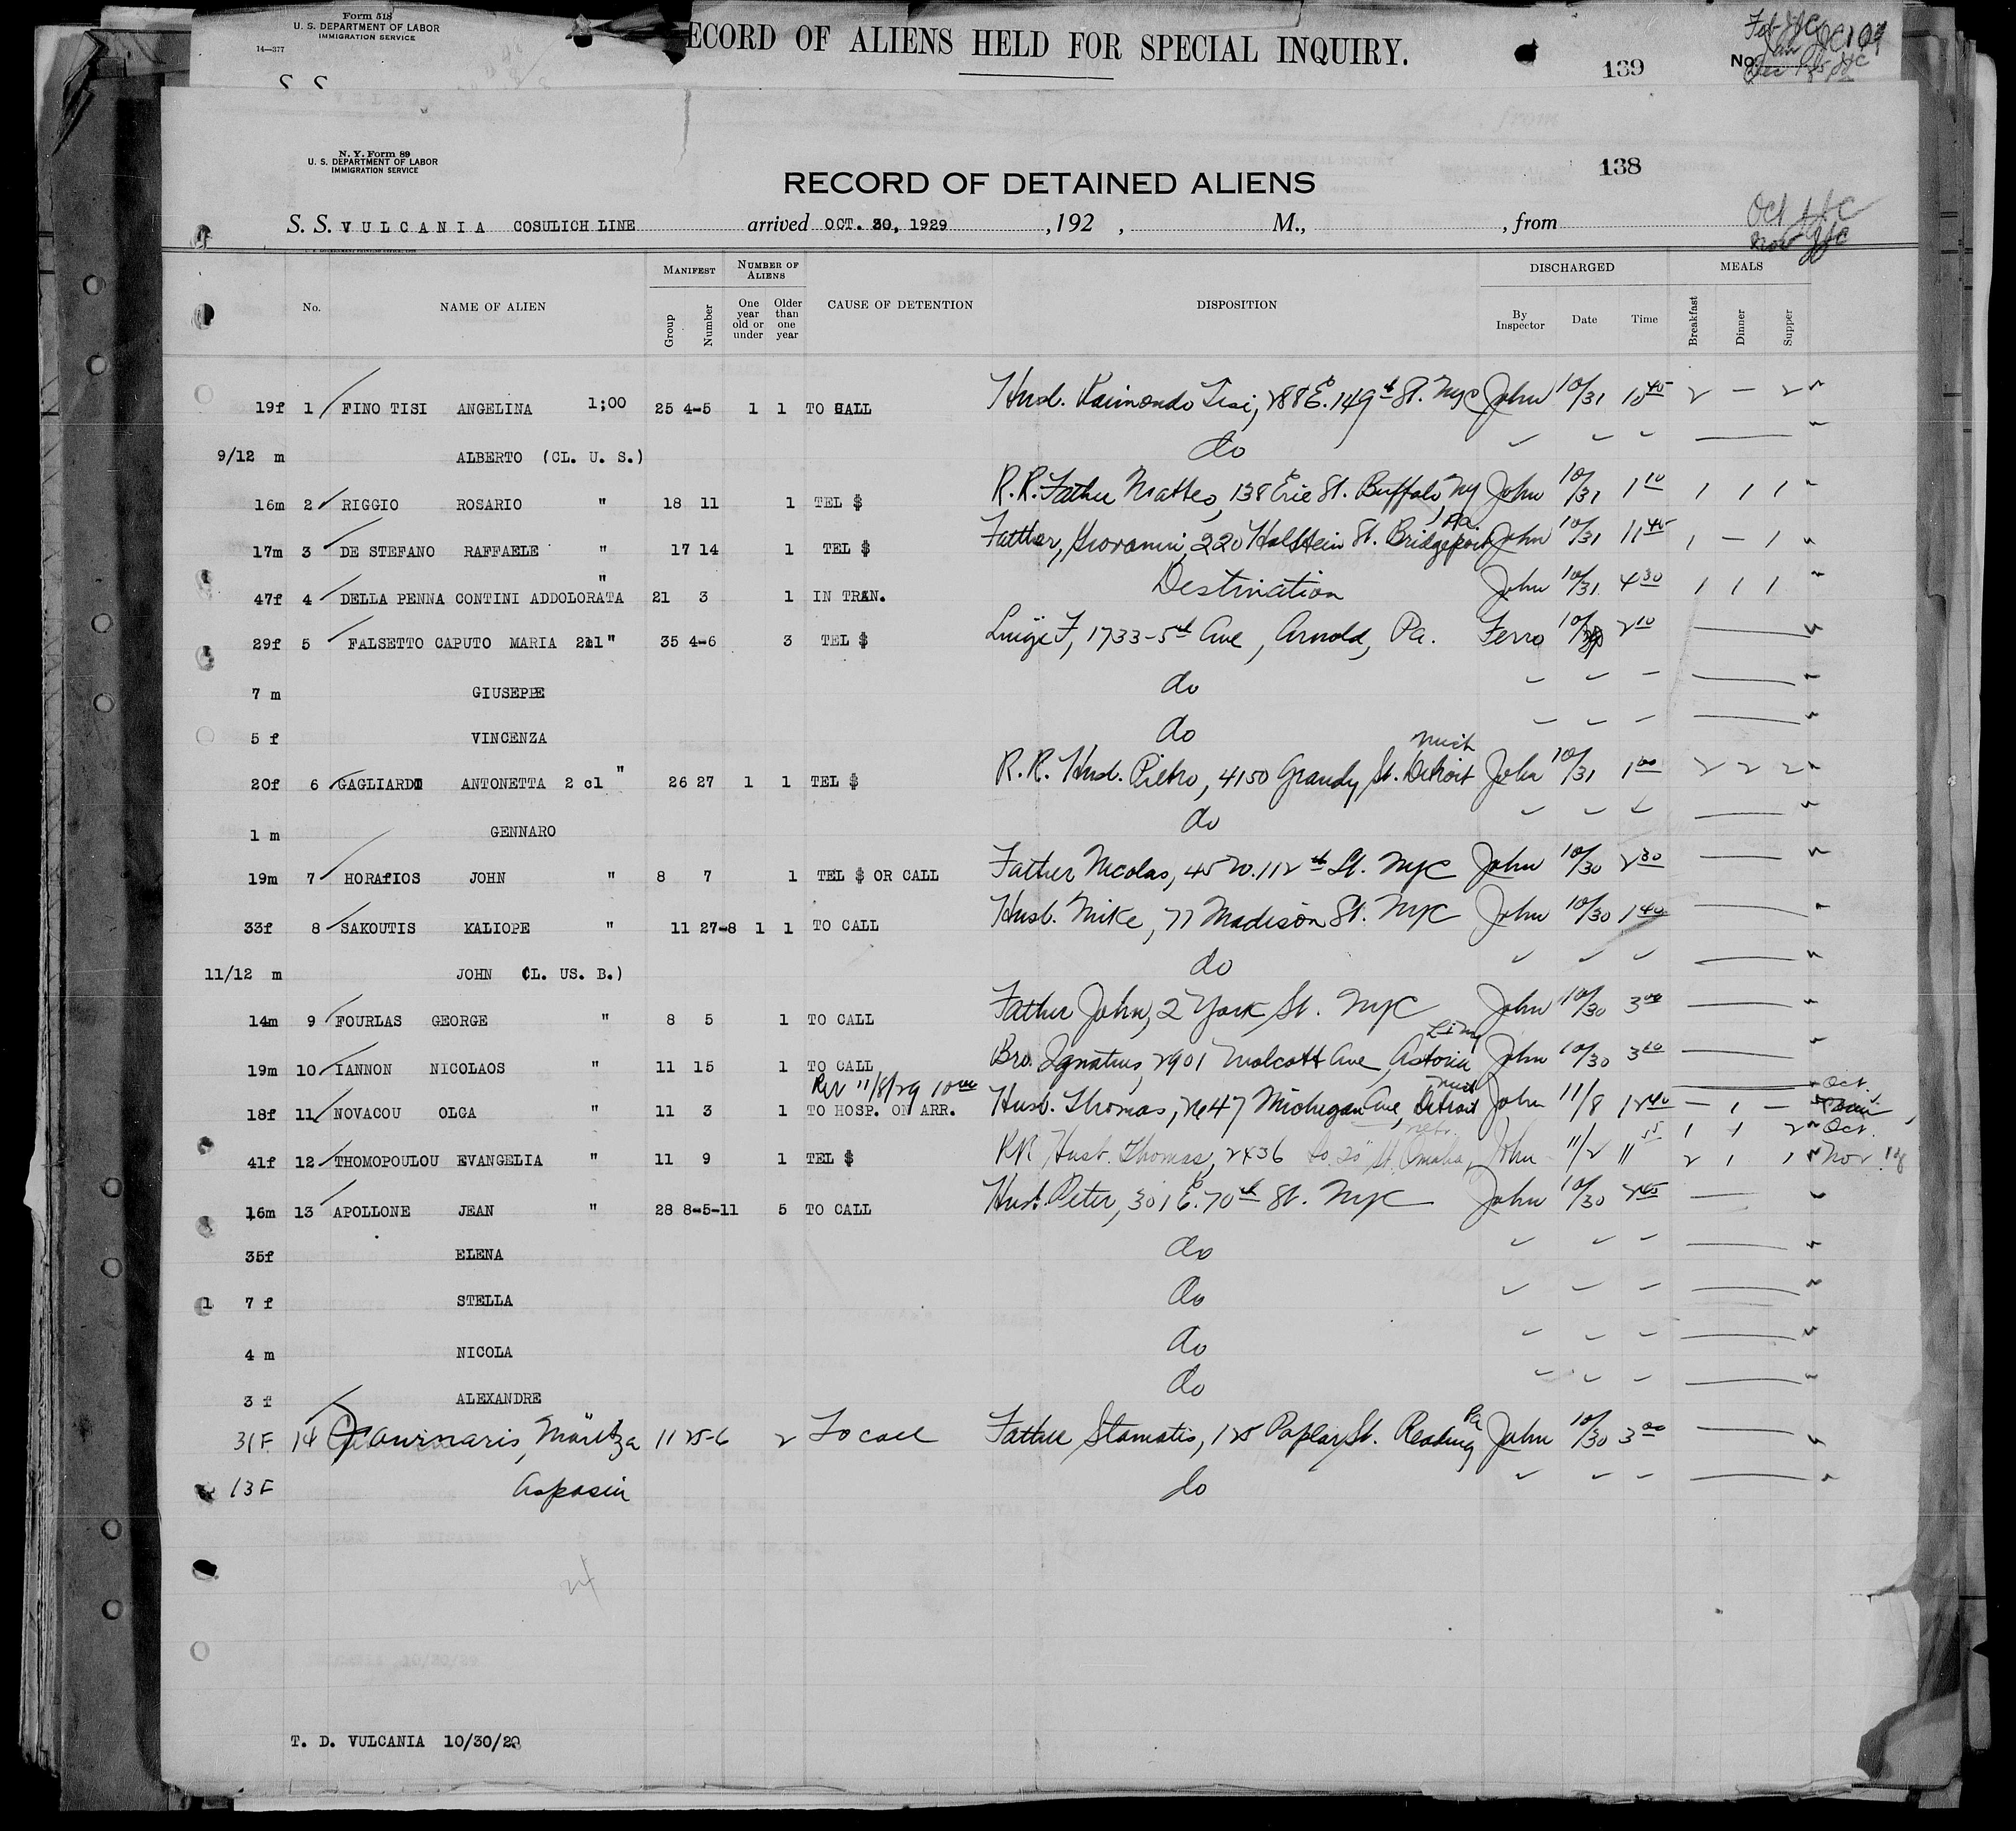 Form 518
U. S. DEPARTMENT OF LABOR
IMMIGRATION SERVICE
14—377
ECORD OF ALIENS HELD FOR SPECIAL INQUIRY.
139
No.
N. Y. Form 89
U. S. DEPARTMENT OF LABOR
IMMIGRATION SERVICE
138
RECORD OF DETAINED ALIENS
S. S. VULCANIA COSULICH LINE arrived OCT. 30, 1929 , 192 , M., , from
Oct
Nov
No. NAME OF ALIEN MANIFEST Group Number NUMBER OF ALIENS One year old or under Older than one year CAUSE OF DETENTION DISPOSITION DISCHARGED By Inspector Date Time MEALS Breakfast Dinner Supper
19f 1 FINO TISI ANGELINA 1;00 25 4-5 1 1 TO CALL Husb. Raimondo Tisi, 288 E. 149th St. NYC John 10/31 10 45 2 — 2
9/12 m ALBERTO (CL. U. S.) do
16m 2 RIGGIO ROSARIO " 18 11 1 TEL $ R.R. Father Matteo, 138 Erie St. Buffalo, NY John 10/31 1 10 1 1 1
17m 3 DE STEFANO RAFFAELE " 17 14 1 TEL $ Father, Giovanni, 220 Holstein St. Bridgeport Pa. John 10/31 11 45 1 — 1
47f 4 DELLA PENNA CONTINI ADDOLORATA " 21 3 1 IN TRAN. Destination John 10/31 4 30 1 1 1
29f 5 FALSETTO CAPUTO MARIA 2cl " 35 4-6 3 TEL $ Luigi F, 1733-5th Ave, Arnold, Pa. Ferro 2 10
7 m GIUSEPPE do
5 f VINCENZA do
20f 6 GAGLIARDI ANTONETTA 2 cl " 26 27 1 1 TEL $ R.R. Husb. Pietro, 4150 Grandy St. Detroit Mich John 10/31 1 00 2 2 2
1 m GENNARO do
19m 7 HORAfIOS JOHN " 8 7 1 TEL $ OR CALL Father Nicolas, 45 W. 112th St. NYC John 10/30 2 30
33f 8 SAKOUTIS KALIOPE " 11 27-8 1 1 TO CALL Husb. Mike, 77 Madison St. NYC John 10/30 1 40
11/12 m JOHN (L. US. B.) do
14m 9 FOURLAS GEORGE " 8 5 1 TO CALL Father John, 2 York St. NYC John 10/30 3 00
19m 10 IANNON NICOLAOS " 11 15 1 TO CALL Bro. Ignatius, 2901 Wolcott Ave, Astoria John 10/30 3 10
Rev 11/8/29 10 00
18f 11 NOVACOU OLGA " 11 3 1 TO HOSP. ON ARR. Husb. Thomas, 2647 Michigan Ave, Detroit Mich John 11/8 12 40 — 1 — Oct.
41f 12 THOMOPOULOU EVANGELIA " 11 9 1 TEL $ RR Husb. Thomas, 2436 So. 20 St. Omaha, Nebr. John 11/2 11 55 1 1 2 Oct.
2 1 1 Nov.
16m 13 APOLLONE JEAN " 28 8-5-11 5 TO CALL Husb. Peter, 301 E. 70th St. NYC John 10/30 2 45
35f ELENA do
7 f STELLA do
4 m NICOLA do
3 f ALEXANDRE do
31F 14 11 25-6 2 To call Father Stamatis, 125 Poplar St. Reading Pa John 10/30 3 00
13F Aspasia do
24
T. D. VULCANIA 10/30/29